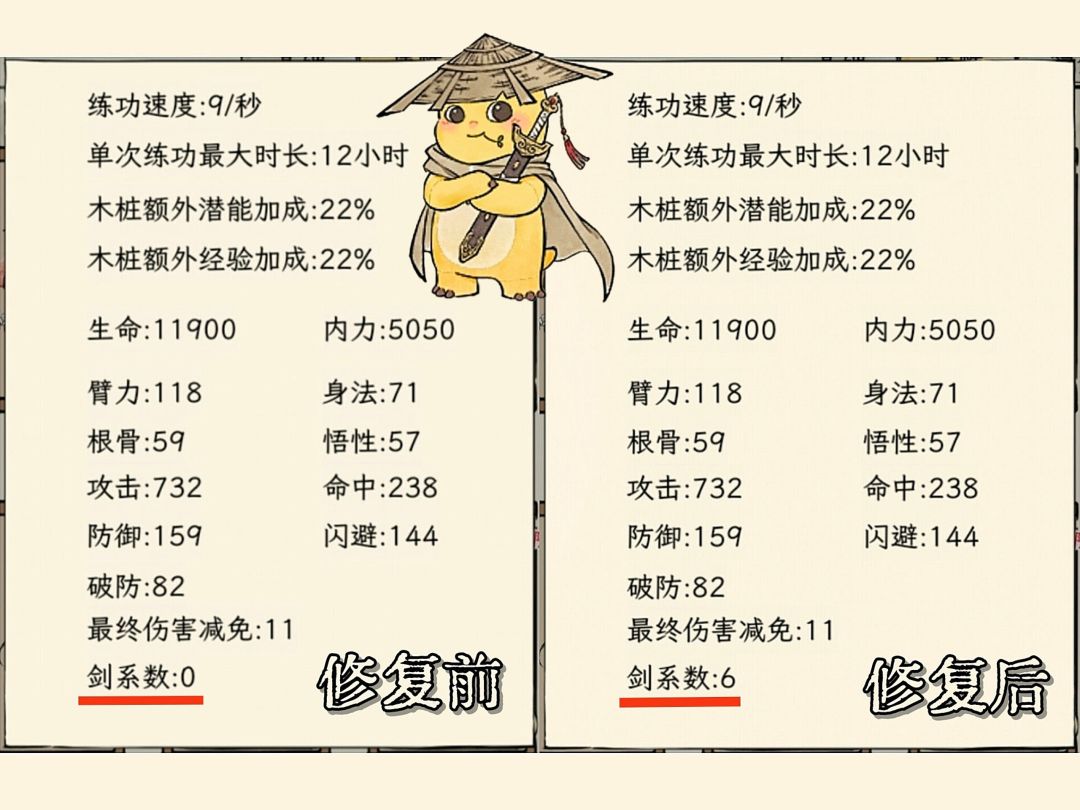 练功速度:9/秒
单次练功最大时长:12小时
木桩额外潜能加成:22%
木桩额外经验加成:22%
生命:11900 内力:5050
臂力:118 身法:71
根骨:59 悟性:57
攻击:732 命中:238
防御:159 闪避:144
破防:82
最终伤害减免:11
剑系数:0
修复前
练功速度:9/秒
单次练功最大时长:12小时
木桩额外潜能加成:22%
木桩额外经验加成:22%
生命:11900 内力:5050
臂力:118 身法:71
根骨:59 悟性:57
攻击:732 命中:238
防御:159 闪避:144
破防:82
最终伤害减免:11
剑系数:6
修复后